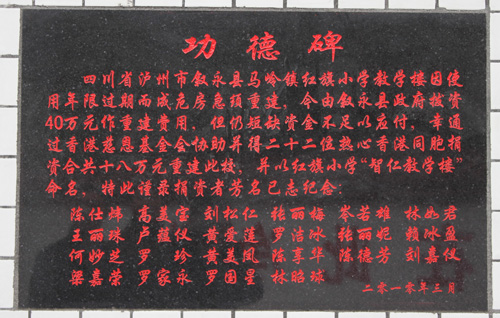 功德碑
四川省泸州市叙永县马岭镇红旗小学教学楼因使
用年限过期而成危房急须重建，今由叙永县政府拔资
40万元作重建费用，但仍短缺资金不足以应付，幸通
过香港慈恩基金会协助并得二十二位热心香港同胞捐
资合共十八万元重建此校，并以红旗小学“智仁教学楼”
命名，特此谨录捐资者芳名已志纪念：
陈仕炜 高美宝 刘松仁 张丽梅 岑若雄 林妃君
王丽珠 卢蕴仪 黄爱莲 罗洁冰 张丽妮 赖冰盈
何妙芝 罗珍 黄美凤 陈享华 陈德芳 刘嘉仪
梁嘉荣 罗家永 罗国星 林昭球
二零一零年三月